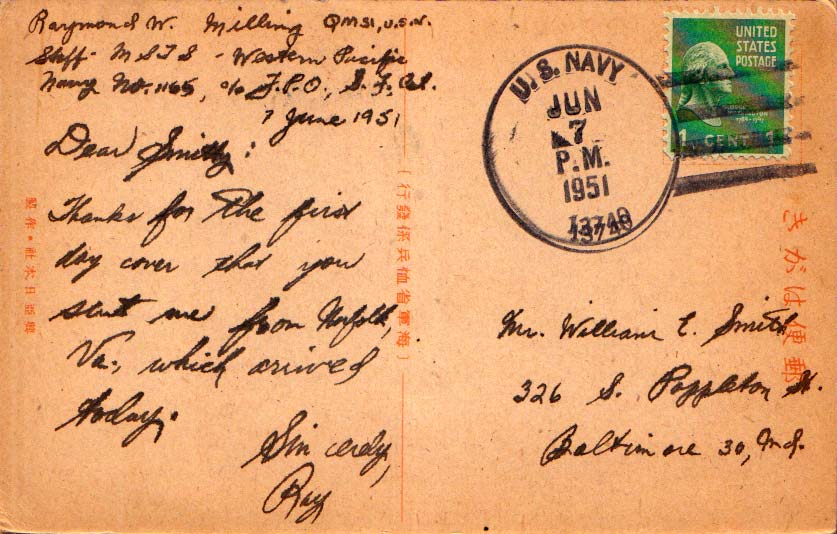 Raymond W. Milling QMS1, U.S.N.
Staff - MSTS - Western Pacific
Navy No. 1165, c/o F.P.O., S.F. Cal.
7 June 1951
Dear Smitty:
Thanks for the first
day cover that you
sent me from Norfolk,
Va., which arrived
today.
Sincerely,
Ray
U.S. NAVY
JUN
7
P.M.
1951
UNITED
STATES
POSTAGE
1 CENT 1
Mr. William E. Smith
326 S. Poppleton St.
Baltimore 30, Md.
きがは便郵
(行發係兵恤省軍海)